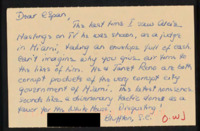 Dear Espan,
The last time I saw Alcée
Hastings on TV he was shown, as a judge
in Miami, taking an envelope full of cash.
Can't imagine why you give air time to
the likes of him. He & Janet Reno are both
corrupt products of the very corrupt city
government of Miami. This latest nonsense
sounds like a diversionary tactic served as a
favor for the White House! Disgusting!
Bluffton, S.C.
O.W.J